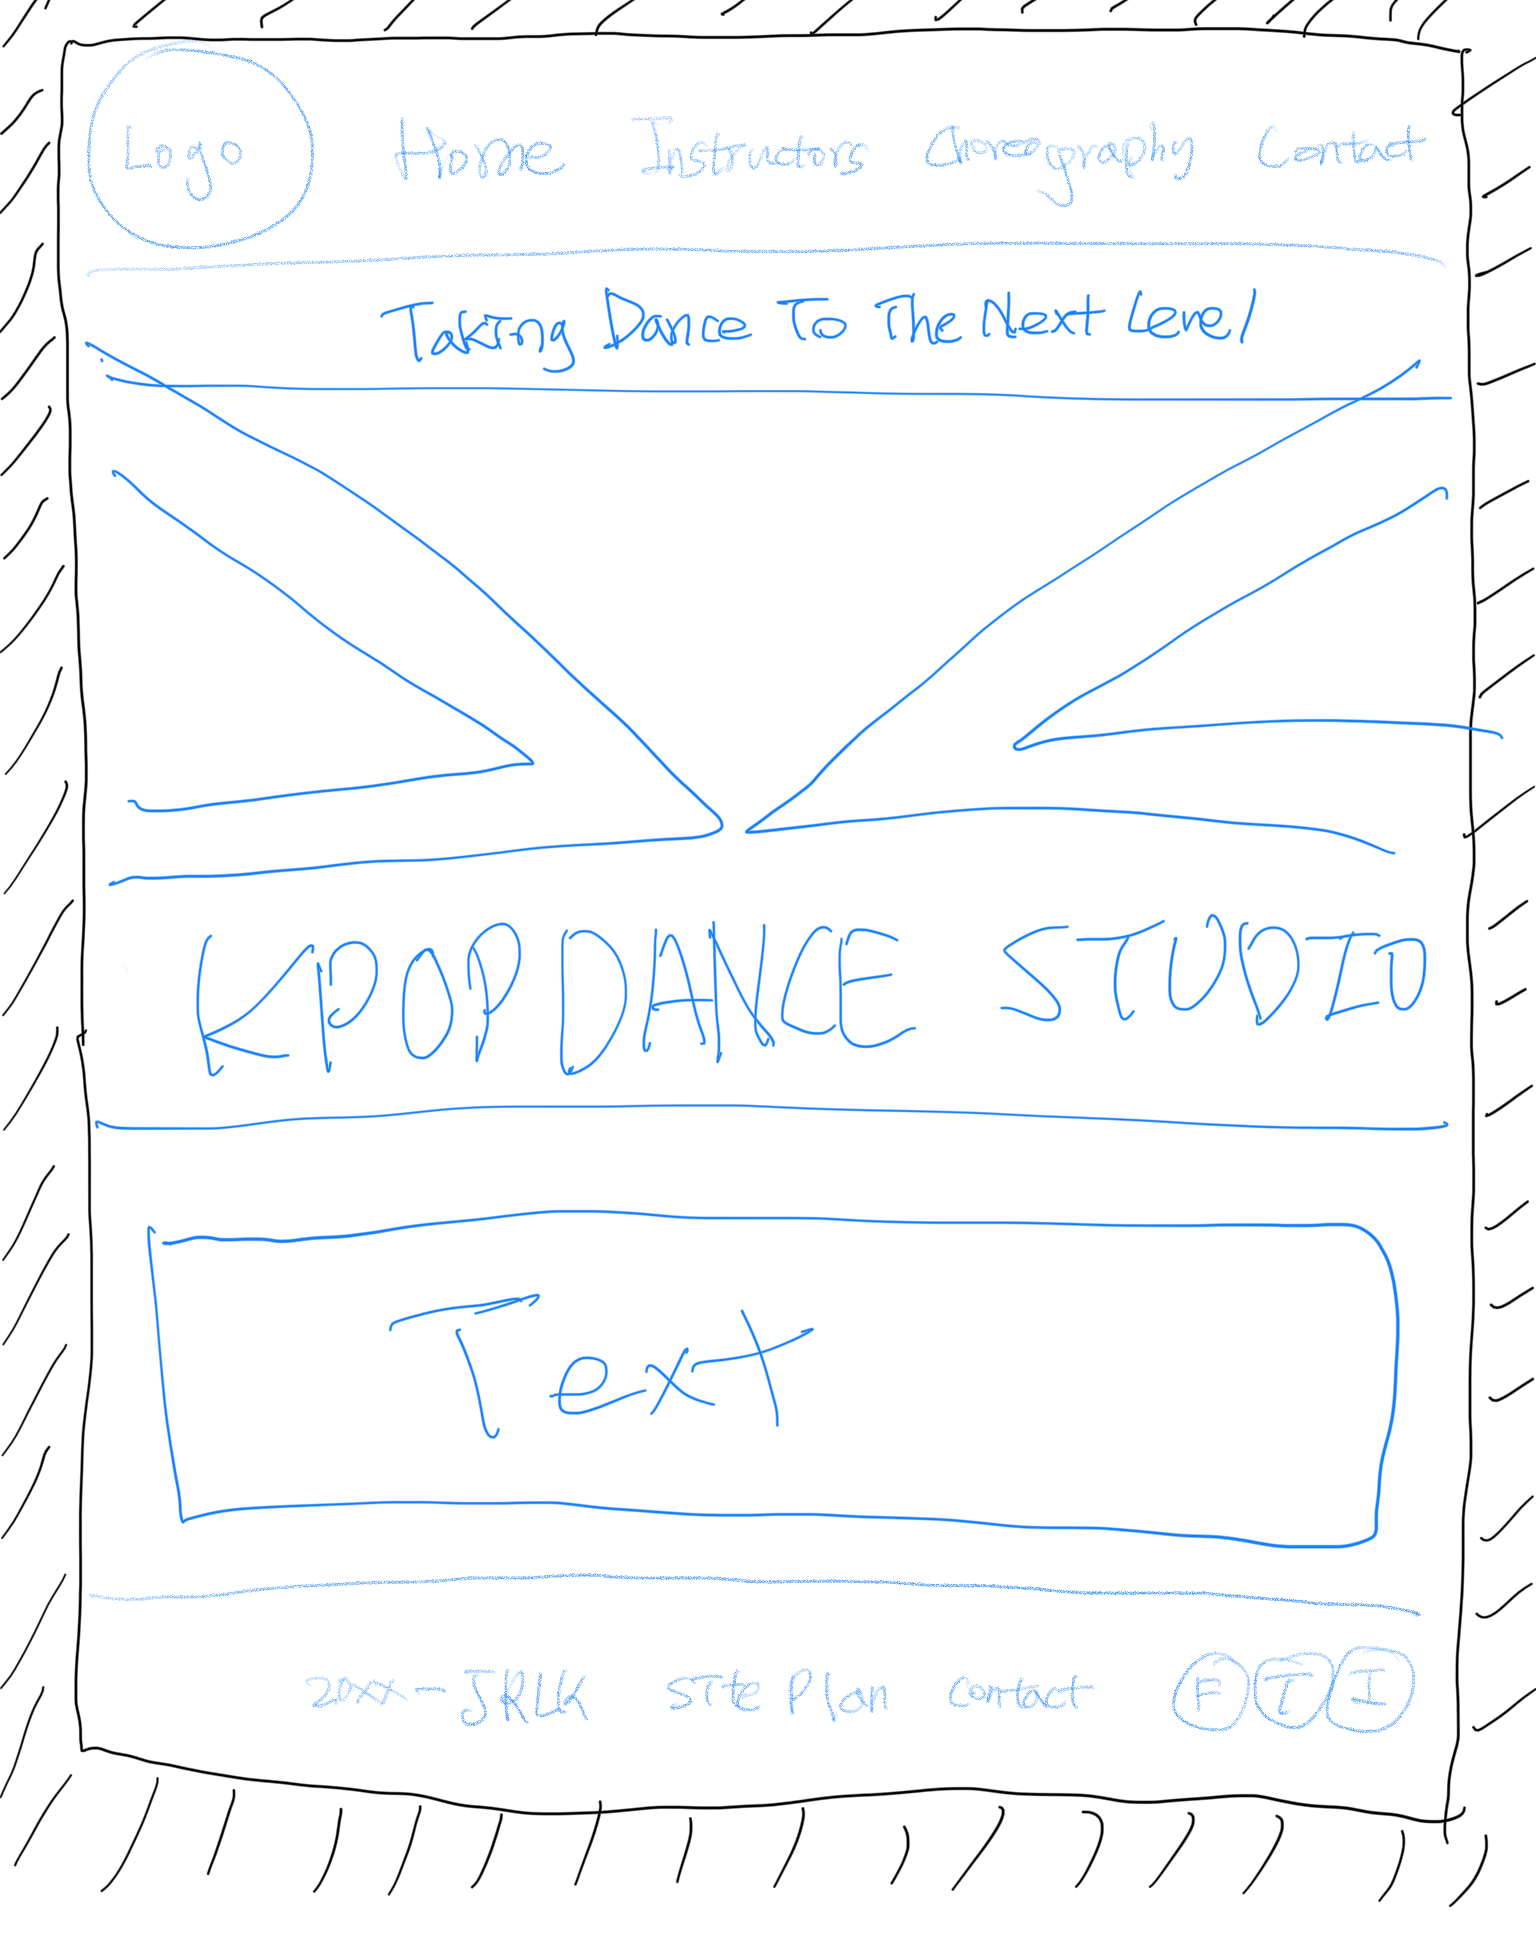 Logo Home Instructors Choreography Contact
Taking Dance To The Next Level
KPOP DANCE STUDIO
Text
20xx - JRLK Site Plan Contact F T I